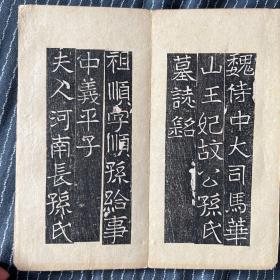 魏侍中大司馬華
山王妃故公孫氏
墓誌銘
祖順字順孫給事
中義平子
夫人河南長孫氏